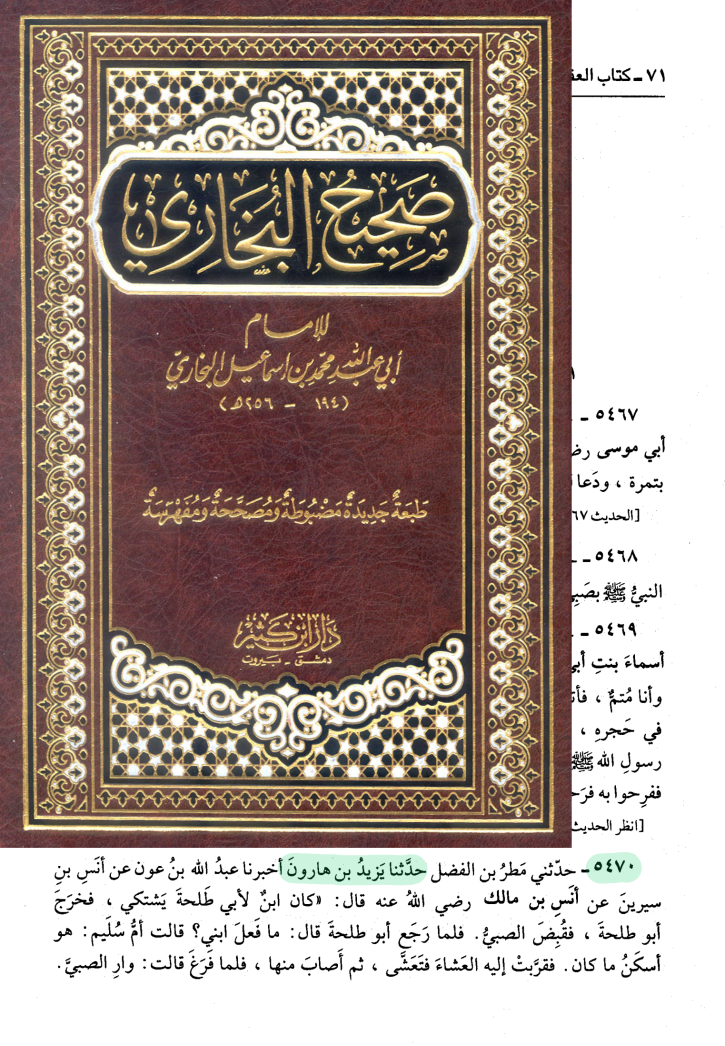 صَحِيحُ البُخَارِي
للإمام
أبي عبد الله محمد بن اسماعيل البخاريّ
(١٩٤ - ٢٥٦هـ)
طَبعَةٌ جَدِيدَةٌ مَضْبُوطَةٌ وَمُصَحَّحَةٌ وَمُفَهْرَسَةٌ
دَار ابن كَثير
دمشق - بيروت
٧١ - كتاب
٥٤٦٧ -
أبي موسى
بتمرة ، ودَعا
[الحديث
٥٤٦٨ -
النبيُّ ﷺ
٥٤٦٩ -
أسماءَ بنتِ
وأنا مُتمٌّ ،
في حَجرهِ ،
رسولِ الله ﷺ
ففرِحوا به
[انظر الحديث
٥٤٧٠ - حدّثني مَطرُ بن الفضل حدَّثنا يَزيدُ بن هارونَ أخبرنا عبدُ الله بنُ عون عن أنَسِ بنِ
سيرينَ عن أنَسِ بن مالك رضي اللهُ عنه قال: «كان ابنٌ لأبي طَلحةَ يَشتكي ، فخرَجَ
أبو طلحةَ ، فقُبِضَ الصبيُّ. فلما رَجَع أبو طلحةَ قال: ما فَعلَ ابني؟ قالت أمُّ سُلَيم: هو
أسكَنُ ما كان. فقرَّبتْ إليه العَشاءَ فتَعشَّى ، ثم أصابَ منها ، فلما فَرَغَ قالت: وارِ الصبيَّ.